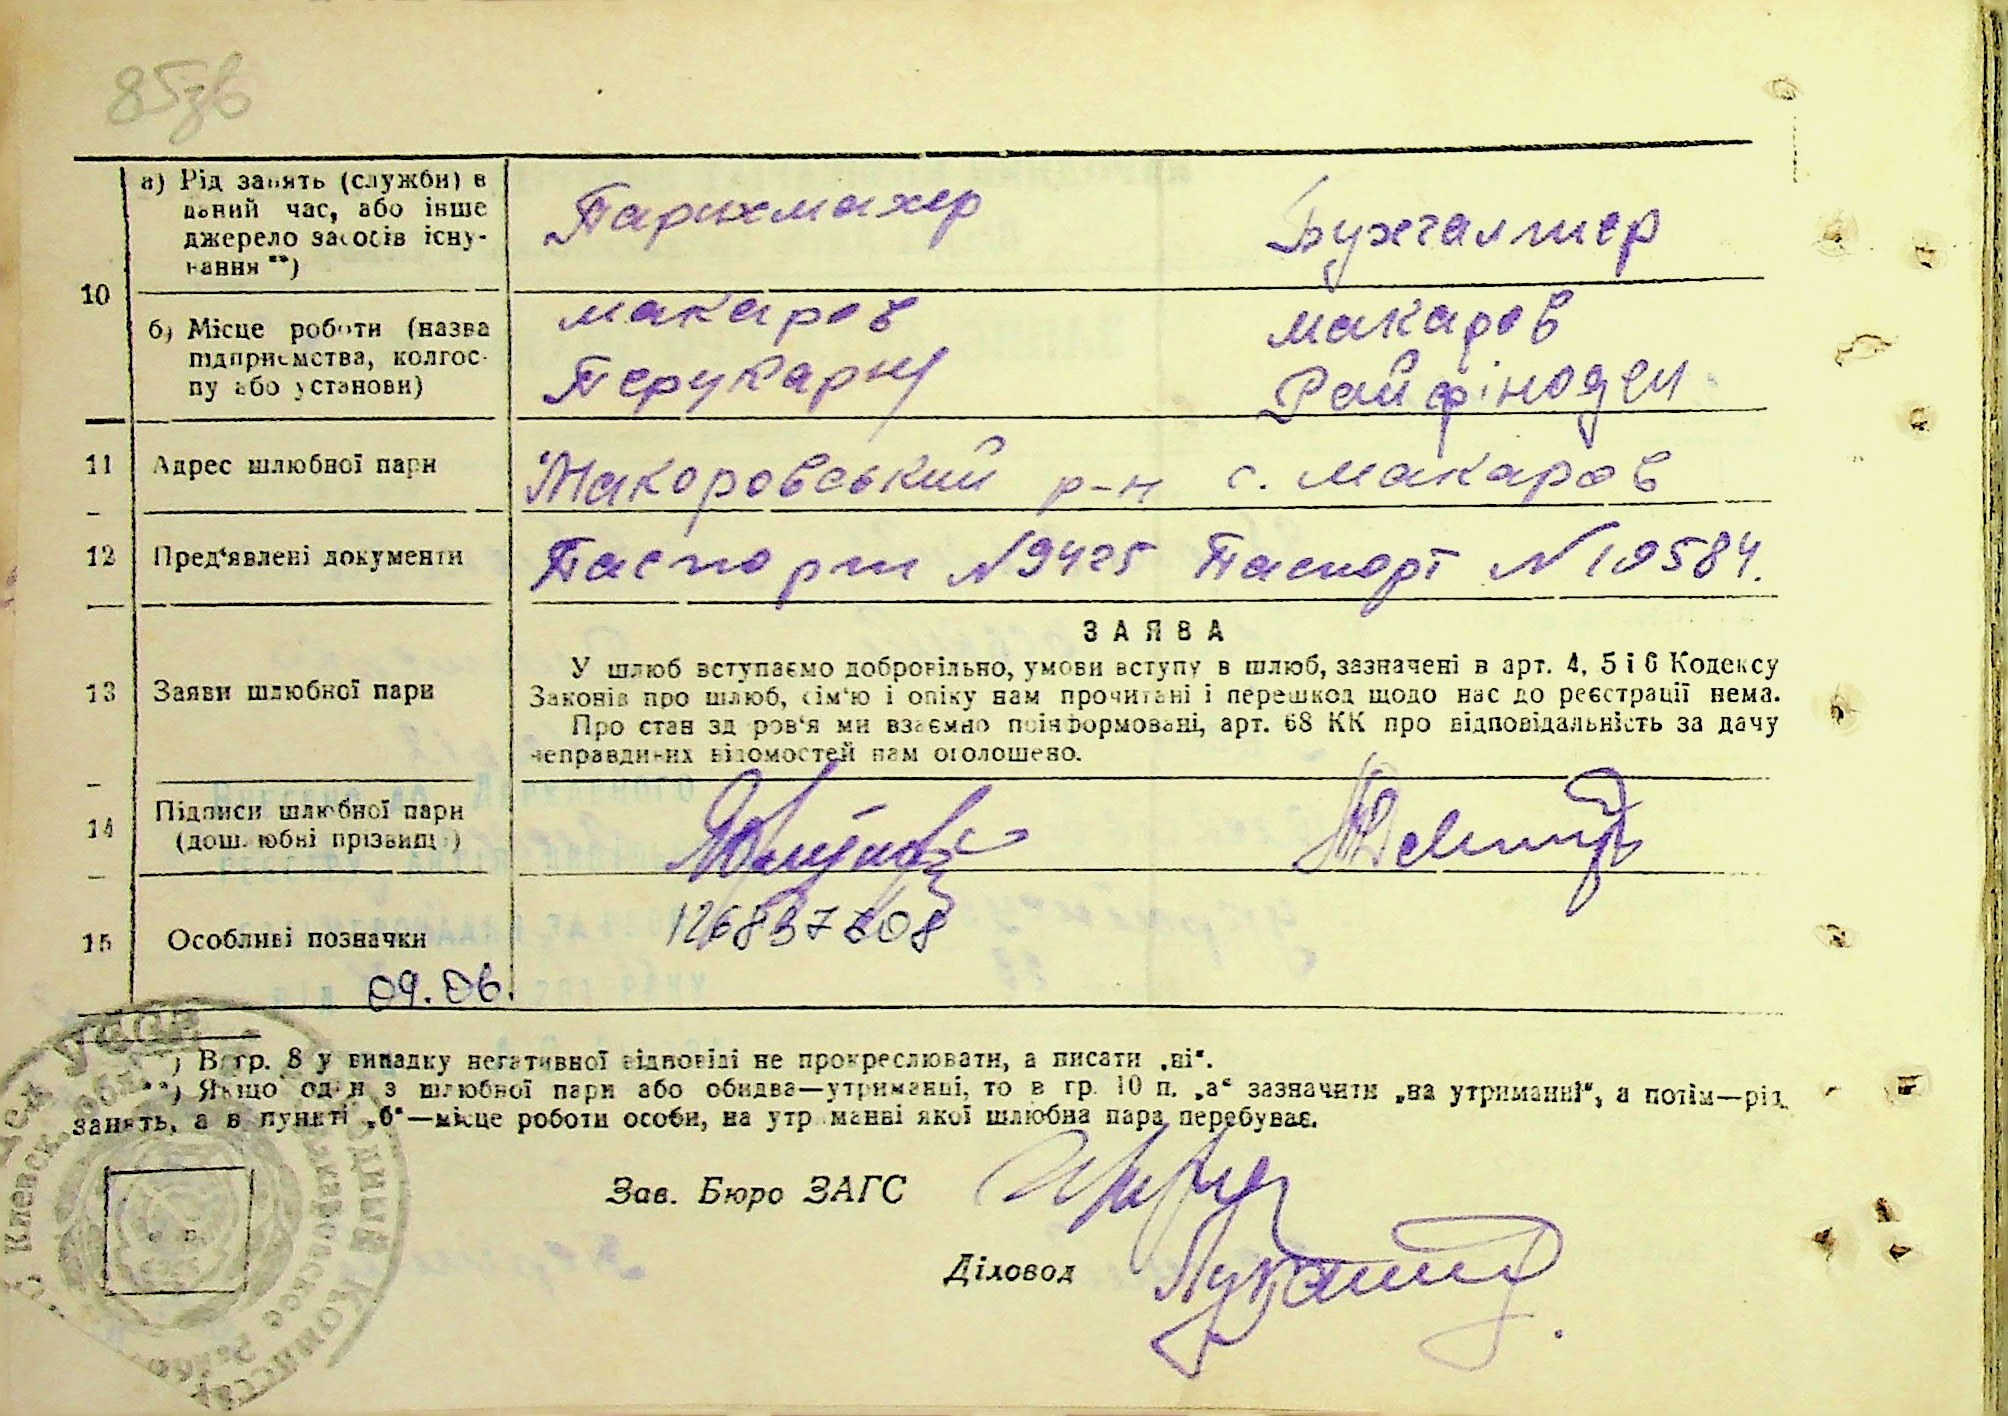 85зв
10
а) Рід занять (служби) в
даний час, або інше
джерело засобів існу-
вання **)
Парихмахер
Бухгалтер
б) Місце роботи (назва
підприємства, колгос-
пу або установи)
макаров
Перукарня
макаров
Райфінодел
11 Адрес шлюбної пари
Макоровський р-н с. макаров
12 Пред'явлені документи
Паспорт N 9425 Паспорт N 10584.
13 Заяви шлюбної пари
ЗАЯВА
У шлюб вступаємо добровільно, умови вступу в шлюб, зазначені в арт. 4, 5 і 6 Кодексу
Законів про шлюб, сім'ю і опіку нам прочитані і перешкод щодо нас до реєстрації нема.
Про стан здоров'я ми взаємно поінформовані, арт. 68 КК про відповідальність за дачу
неправдивих відомостей нам оголошено.
14 Підписи шлюбної пари
(дошлюбні прізвища)
15 Особливі позначки
126837608
09.06.
*) В гр. 8 у випадку негативної відповіді не прокреслювати, а писати „ні“.
**) Якщо один з шлюбної пари або обидва—утриманці, то в гр. 10 п. „а“ зазначити „на утриманні“, а потім—рід
занять, а в пункті „б“—місце роботи особи, на утриманні якої шлюбна пара перебуває.
Зав. Бюро ЗАГС
Діловод